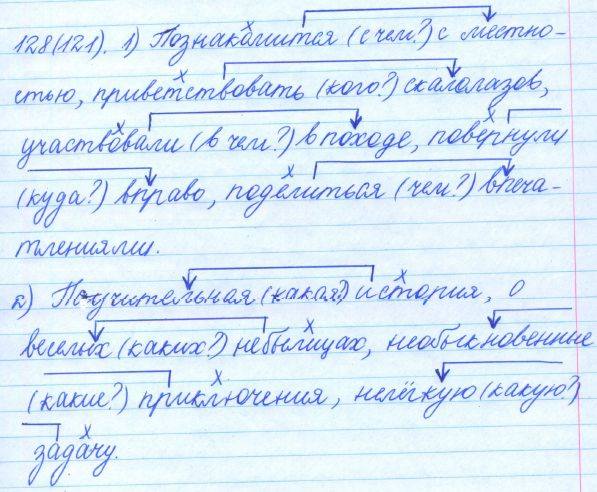 128(121). 1) Познакомится (с чем?) с местно-
стью, приветствовать (кого?) скалолазов,
участвовали (в чем?) в походе, повернули
(куда?) вправо, поделиться (чем?) впеча-
тлениями.
2) Поучительная (какая?) история, о
веселых (каких?) небылицах, необыкновенные
(какие?) приключения, нелёгкую (какую?)
задачу.